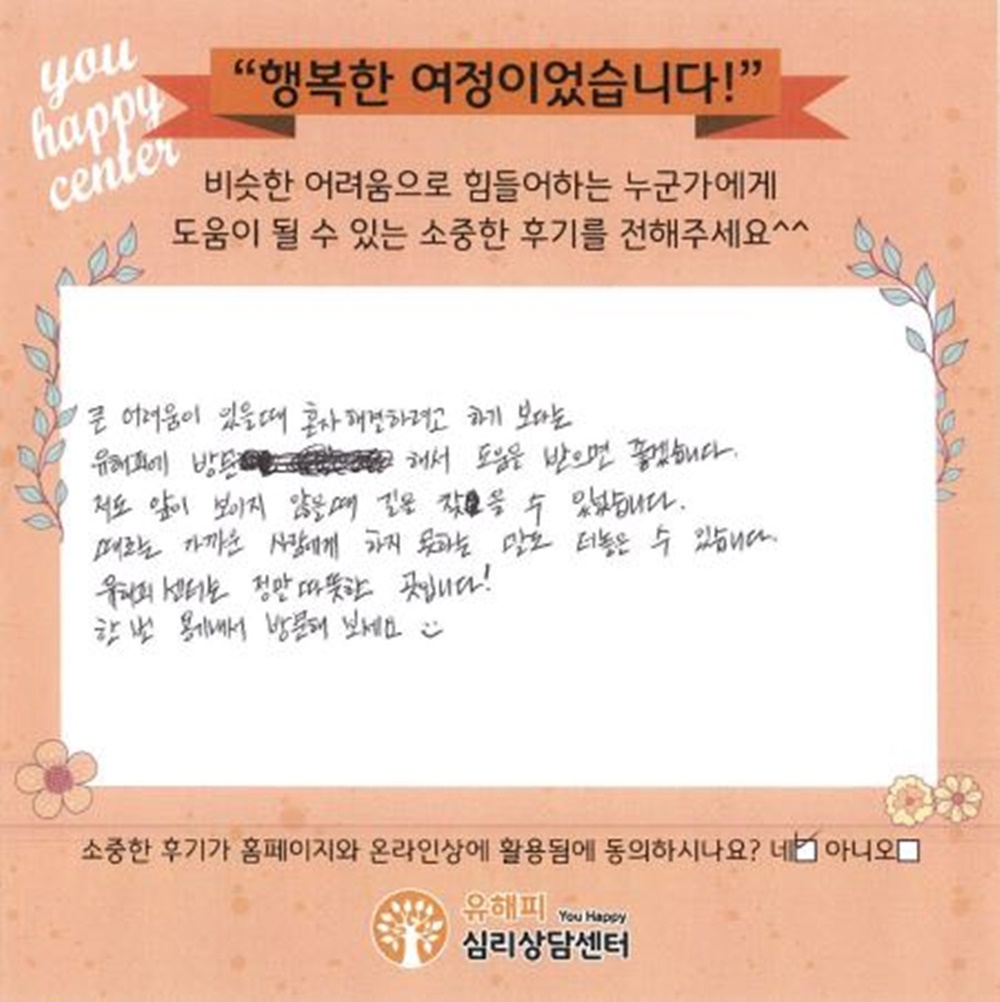 you
happy
center
“행복한 여정이었습니다!”
비슷한 어려움으로 힘들어하는 누군가에게
도움이 될 수 있는 소중한 후기를 전해주세요^^
큰 어려움이 있을때 혼자 해결하려고 하기 보다는
유해피에 방문 해서 도움을 받으면 좋겠습니다.
저도 앞이 보이지 않을때 길을 찾을 수 있었습니다.
때로는 가까운 사람에게 하지 못하는 말도 터놓을 수 있습니다.
유해피 센터는 정말 따뜻한 곳입니다!
한 번 용기내서 방문해 보세요
소중한 후기가 홈페이지와 온라인상에 활용됨에 동의하시나요? 네 아니오
유해피 You Happy
심리상담센터